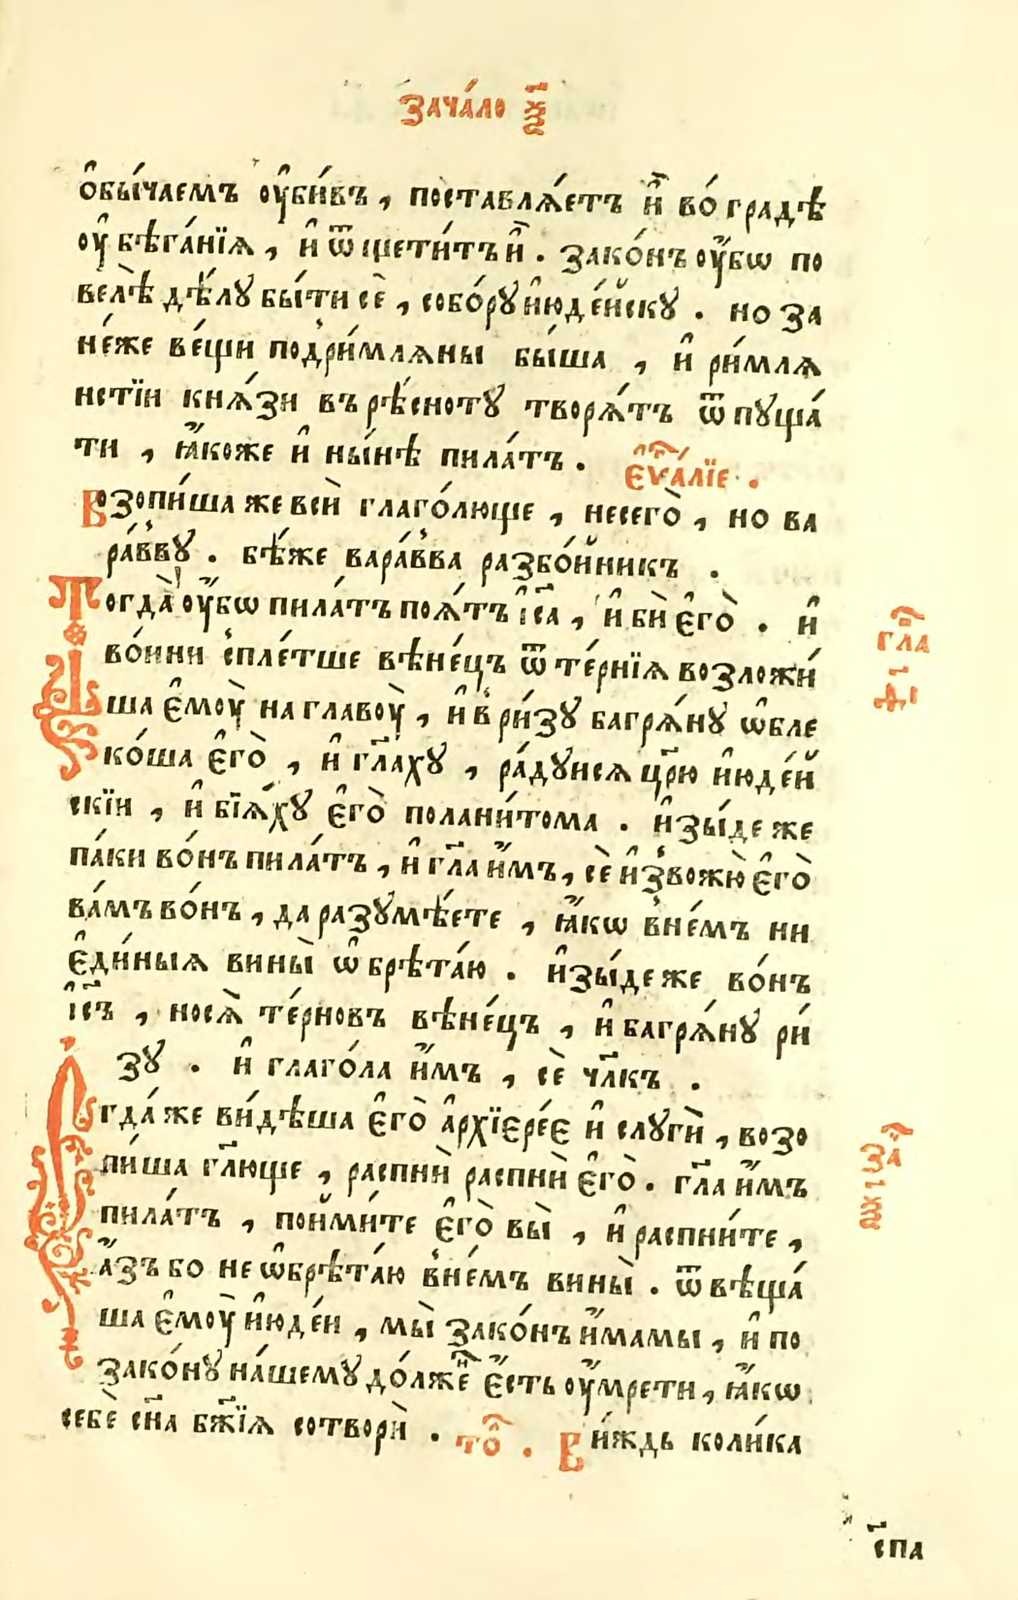 зача́ло ѯ҃
ѻ҆бы́чаемъ ѹ҆би́въ, поставлѧ́етъ и҆̀ во́ градѣ
ѹ҆ бѣга́нїѧ, и҆ ѿщети́тъ и҆̀. зако́нъ ѹ҆́бѡ по
велѣ̀ дѣ́лу бы́ти сѐ, собо́ру и҆юде́йску. но за
не́же ве́щи подри́млѧны бы́ша, и҆ ри́млѧ
нстїи кнѧ́зи въ рѣ́сноту творѧ́тъ ѿпуща́
ти, ꙗ҆́коже и҆ ны́нѣ пила́тъ. єѵⷢ҇а́лїе.
Возопи́ша же всѝ глаго́люще, не сего̀, но ва
ра́вву. бѣ́ же вара́вва разбо́йникъ.
Тогда̀ ѹ҆́бѡ пила́тъ поѧ́тъ і҆с҃а, и҆ бѝ є҆го̀. и҆
во́ини спле́тше вѣне́цъ ѿ те́рнїѧ возложи́
ша є҆мѹ̀ на главѹ̀, и҆ в ри́зу багрѧ́ну ѡ҆бле
ко́ша є҆го̀, и҆ гл҃аху, ра́дуисѧ цр҃ю и҆юде́й
скїи, и҆ бїѧ́ху є҆го̀ полани́тома. и҆зы́де же
па́ки во́нъ пила́тъ, и҆ гл҃а и҆́мъ, сѐ и҆звожю̀ є҆го̀
ва́мъ во́нъ, да разумѣ́ете, ꙗ҆́кѡ в не́мъ ни
є҆ди́ныѧ вины̀ ѡ҆брѣта́ю. и҆зы́де же во́нъ
і҆с҃ъ, носѧ̀ те́рновъ вѣне́цъ, и҆ багрѧ́ну ри́
зу. и҆ глаго́ла и҆́мъ, сѐ чл҃къ.
Єгда́ же ви́дѣша є҆го̀ а҆рхїєре́є и҆ слугѝ, возо
пи́ша гл҃юще, распнѝ распнѝ є҆го̀. гл҃а и҆́мъ
пила́тъ, пойми́те є҆го̀ вы̀, и҆ распни́те,
а҆́зъ бо не ѡ҆брѣта́ю в не́мъ вины̀. ѿвѣща́
ша є҆мѹ̀ и҆юде́и, мы̀ зако́нъ и҆́мамы, и҆ по
зако́ну на́шему до́лжеⷩ҇ є҆́сть ѹ҆́мрети, ꙗ҆́кѡ
себѐ сн҃а бж҃їѧ сотворѝ. тоⷧ҇. Ви́ждь коли́ка
глаⷡ҇
ф҃і
заⷱ҇
сп҃а